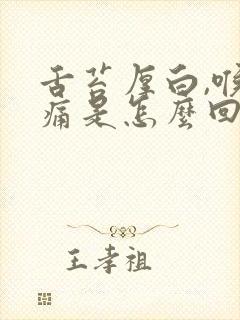 舌苔厚白,喉
痛是怎麼回
王孝祖